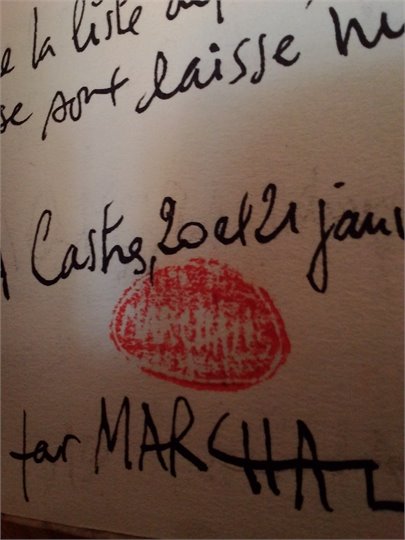 e la liste
se sont laisse
Castres, 20 et 21 janv
MARCHAL